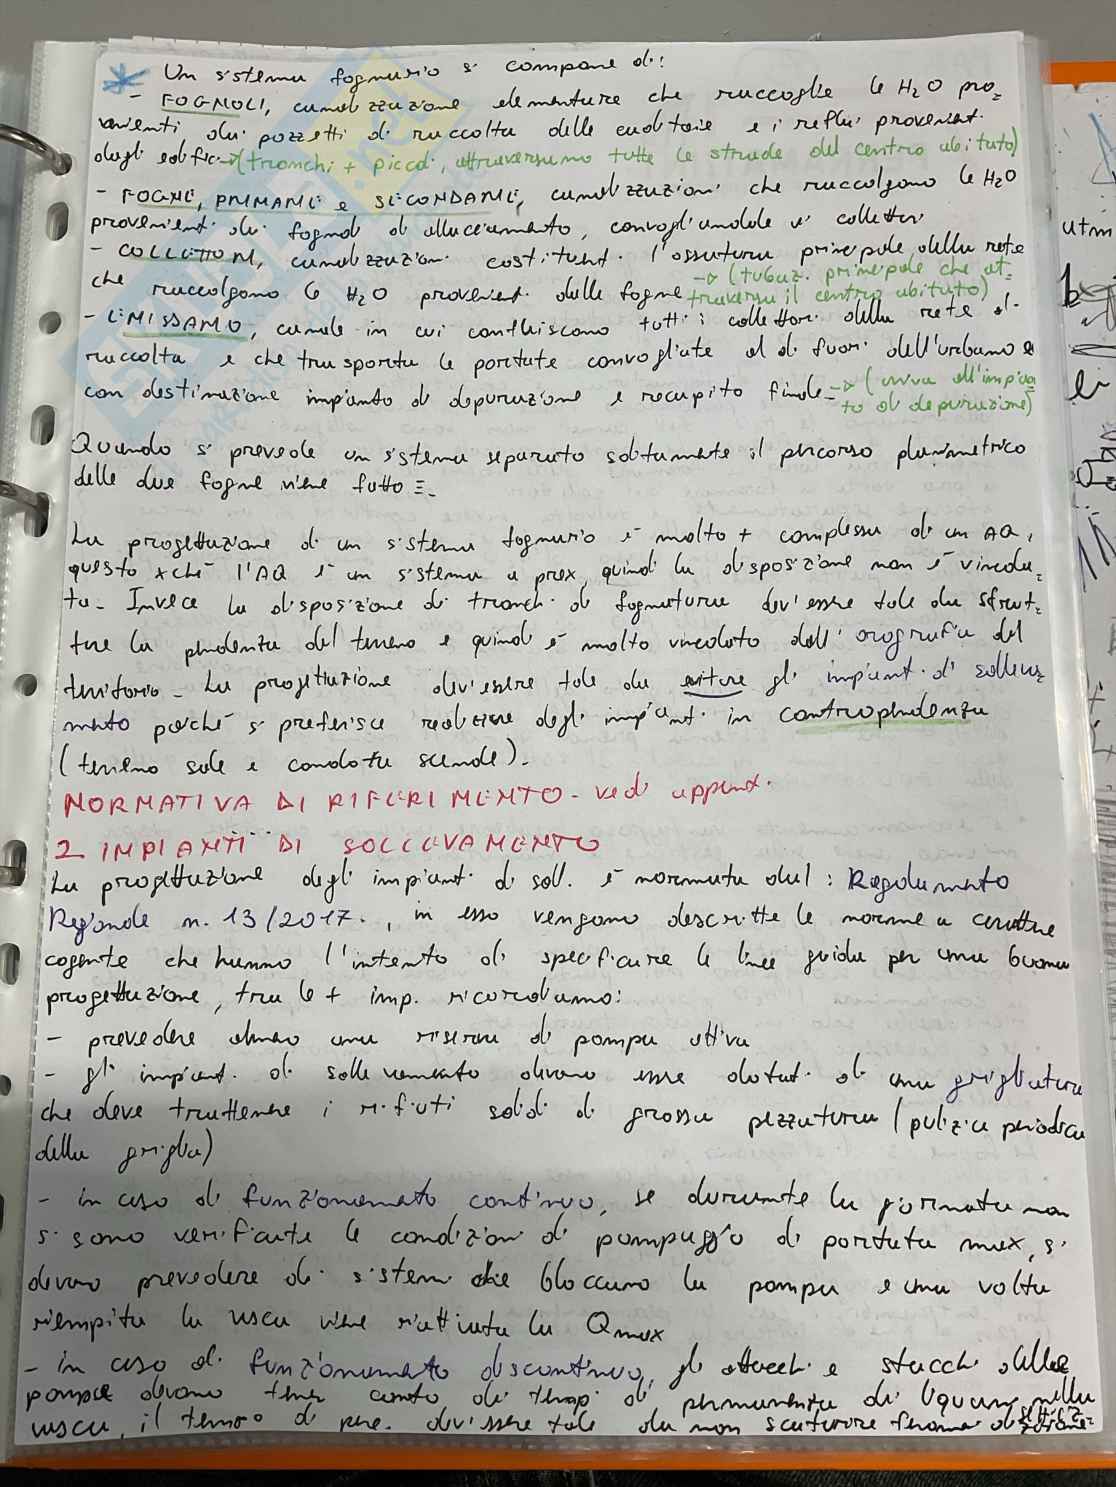 Un sistema fognario si compone di:
- FOGNOLI, canalizzazione elementare che raccoglie le H2O pro=
venienti dai pozzetti di raccolta delle caditoie e i reflui provenient.
dagli edifici -> (tronchi + piccoli, attraversano tutte le strade del centro abitato)
- FOGNE, PRIMARIE e SECONDARIE, canalizzazioni che raccolgono le H2O
provenienti dai fognoli di allacciamento, convogliandole ai collettori
- COLLETTORI, canalizzazioni costituenti l'ossatura principale della rete
che raccolgono le H2O provenient. dalle fogne -> (tubaz. principale che at=
traversa il centro abitato)
- EMISSARIO, canale in cui confluiscono tutti i collettori della rete di
raccolta e che trasporta le portate convogliate al di fuori dell'urbano e
con destinazione impianto di depurazione e recapito finale -> (arriva all'impian
to di depurazione)
Quando si prevede un sistema separato solitamente il percorso planimetrico
delle due fogne viene fatto ≡.
La progettazione di un sistema fognario è molto + complessa di un AQ,
questo xché l'AQ è un sistema a prex, quindi la disposizione non è vincola=
ta. Invece la disposizione di tronchi di fognatura dev'essere tale da sfrut=
tare la pendenza del terreno e quindi è molto vincolato dall'orografia del
territorio. La progettazione dev'essere tale da evitare gli impianti di solleva=
mento poiché si preferisce realizzare degli impianti in contropendenza
(terreno sale e condotta scende).
NORMATIVA DI RIFERIMENTO - vedi appunt.
2 IMPIANTI DI SOLLEVAMENTO
La progettazione degli impianti di soll. è normata dal: Regolamento
Regionale n. 13/2017., in esso vengono descritte le norme a carattere
cogente che hanno l'intento di specificare le linee guida per una buona
progettazione, tra le + imp. ricordiamo:
- prevedere almeno una riserva di pompa attiva
- gli impianti di sollevamento devono essere dotati di una grigliatura
che deve trattenere i rifiuti solidi di grossa pezzatura (pulizia periodica
della griglia)
- in caso di funzionamento continuo, se durante la giornata non
si sono verificate le condizioni di pompaggio di portata max, si
devono prevedere dei sistemi che bloccano la pompa e una volta
riempita la vasca viene riattivata la Qmax
- in caso di funzionamento discontinuo, gli attacchi e stacchi delle
pompe devono tener conto dei tempi di permanenza dei liquami nella
vasca, il tempo di per. dev'essere tale da non scaturire fenomeni di